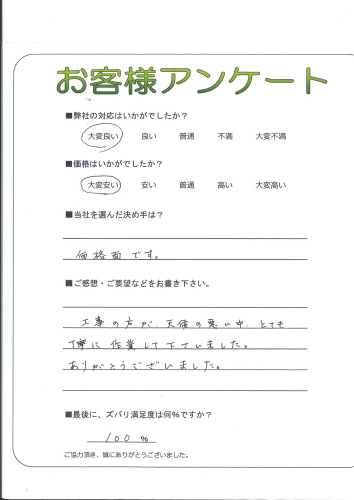 お客様アンケート
■弊社の対応はいかがでしたか？
大変良い 良い 普通 不満 大変不満
■価格はいかがでしたか？
大変安い 安い 普通 高い 大変高い
■当社を選んだ決め手は？
価格面です。
■ご感想・ご要望などをお書き下さい。
工事の方が、天候の悪い中、とても
丁寧に作業して下さいました。
ありがとうございました。
■最後に、ズバリ満足度は何%ですか？
100 %
ご協力頂き、誠にありがとうございました。